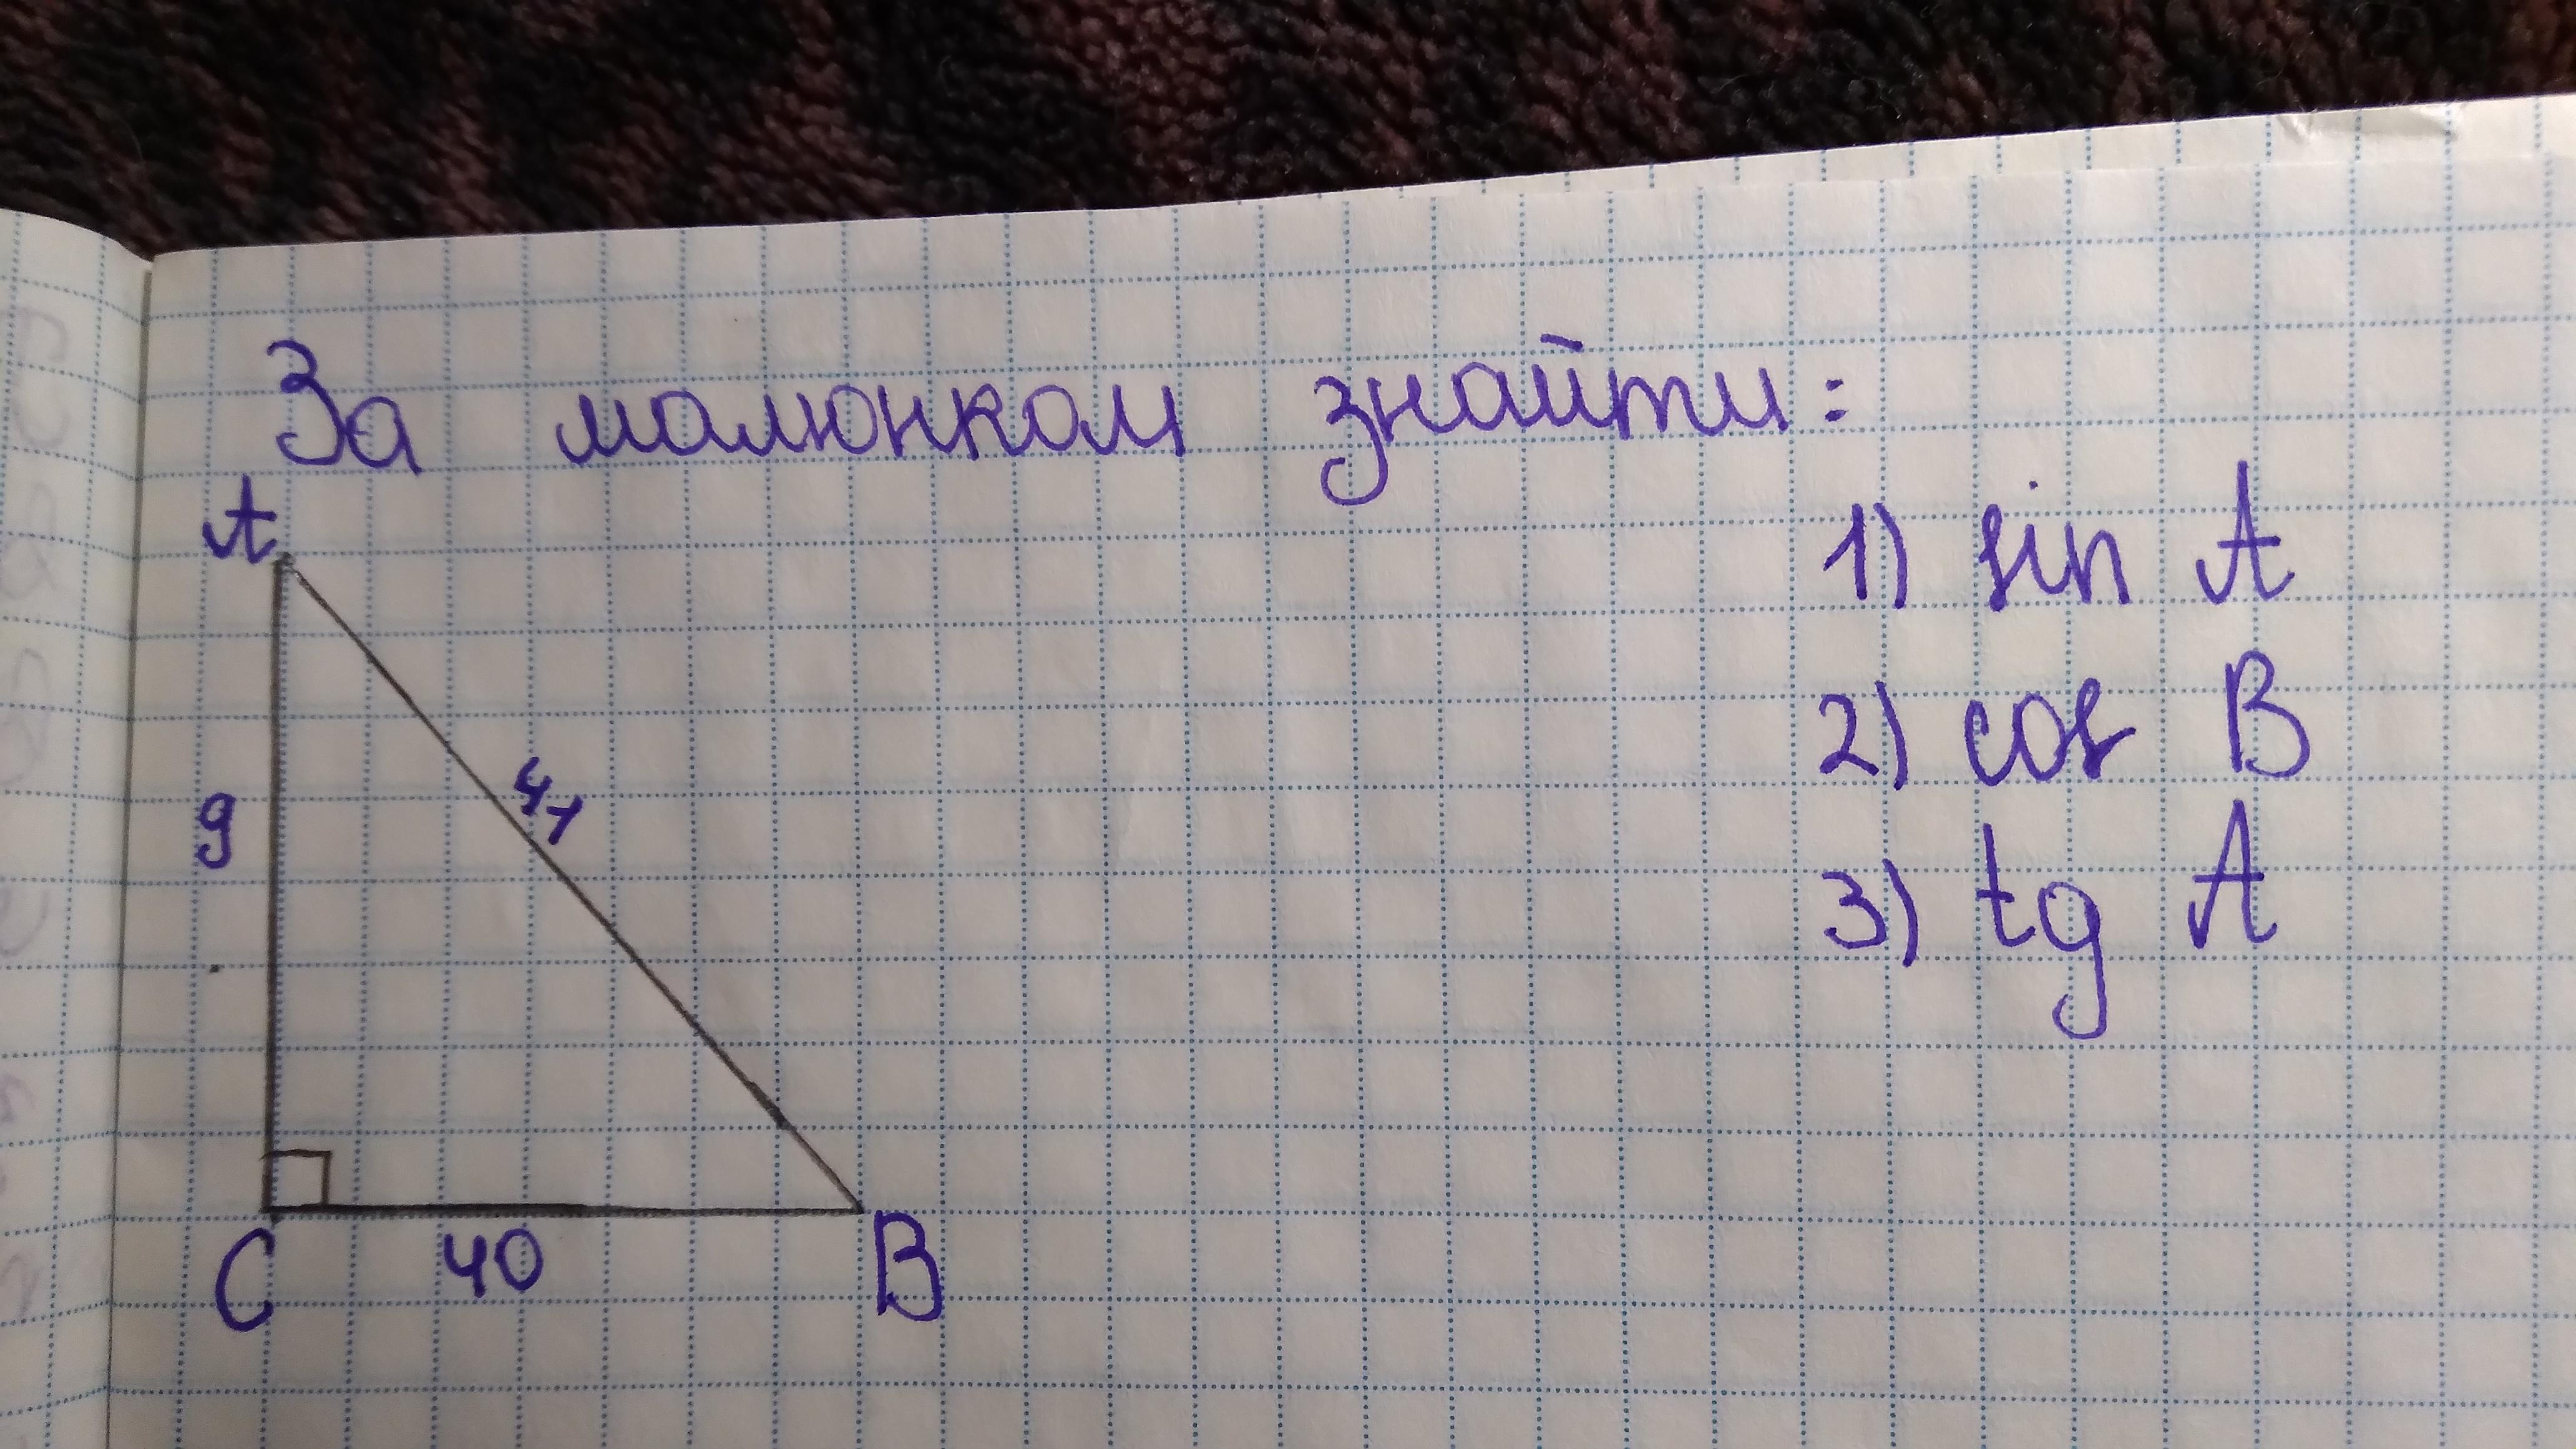 За малюнком знайти:
A
1) sin A
2) cos B
9
41
3) tg A
C
40
B